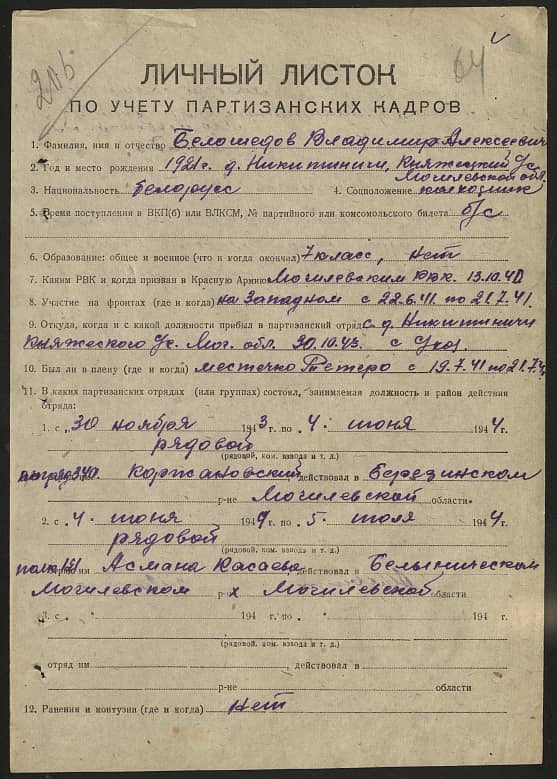 216
64
ЛИЧНЫЙ ЛИСТОК
ПО УЧЕТУ ПАРТИЗАНСКИХ КАДРОВ
1. Фамилия, имя и отчество Белошедов Владимир Алексеевич
2. Год и место рождения 1921 г. д. Никитиничи, Княжецкий с/с.
Могилевской обл.
3. Национальность Белорусс 4. Соцположение колхозник
5. Время поступления в ВКП(б) или ВЛКСМ, № партийного или комсомольского билета б/с
6. Образование: общее и военное (что и когда окончил) 7 класс, нет
7. Каким РВК и когда призван в Красную Армию Могилевским РВК. 13.10.40
8. Участие на фронтах (где и когда) на Западном с 22.6.41. по 21.7.41.
9. Откуда, когда и с какой должности прибыл в партизанский отряд с д. Никитиничи
Княжеского с/с. Мог. обл. 30.10.43. с
10. Был ли в плену (где и когда) местечко Тетеро с 19.7.41 по 21.7.4
11. В каких партизанских отрядах (или группах) состоял, занимаемая должность и район действия
отряда:
1. с „30 ноября 1943 г. по „4. июня 1944 г.
рядовой
(рядовой, ком. взвода и т. д.)
340 Коржановский действовал в Березинском
р-не Могилевской области.
2. с „4. июня 1944 г. по „5. июля 1944 г.
рядовой
(рядовой, ком. взвода и т. д.)
полк 121 Асмана Касаева действовал в Белыничском
Могилевском р-х Могилевской области
3. с „ " 194 г. по „ " 194 г.
(рядовой, ком. взвода и т. д.)
отряд им действовал в
р-не области
12. Ранения и контузии (где и когда) нет